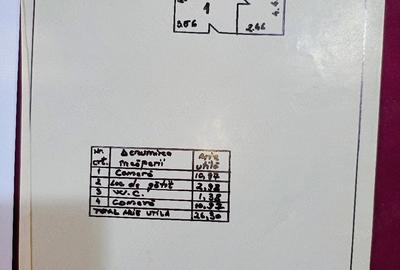 1
3.56
2.46
4.4
Nr. crt. Denumirea încăperii Arie utilă
1 Cameră 10,97
2 Loc de gătit 2,98
3 W.C. 1,38
4 Cameră 10,97
TOTAL ARIE UTILĂ 26,30